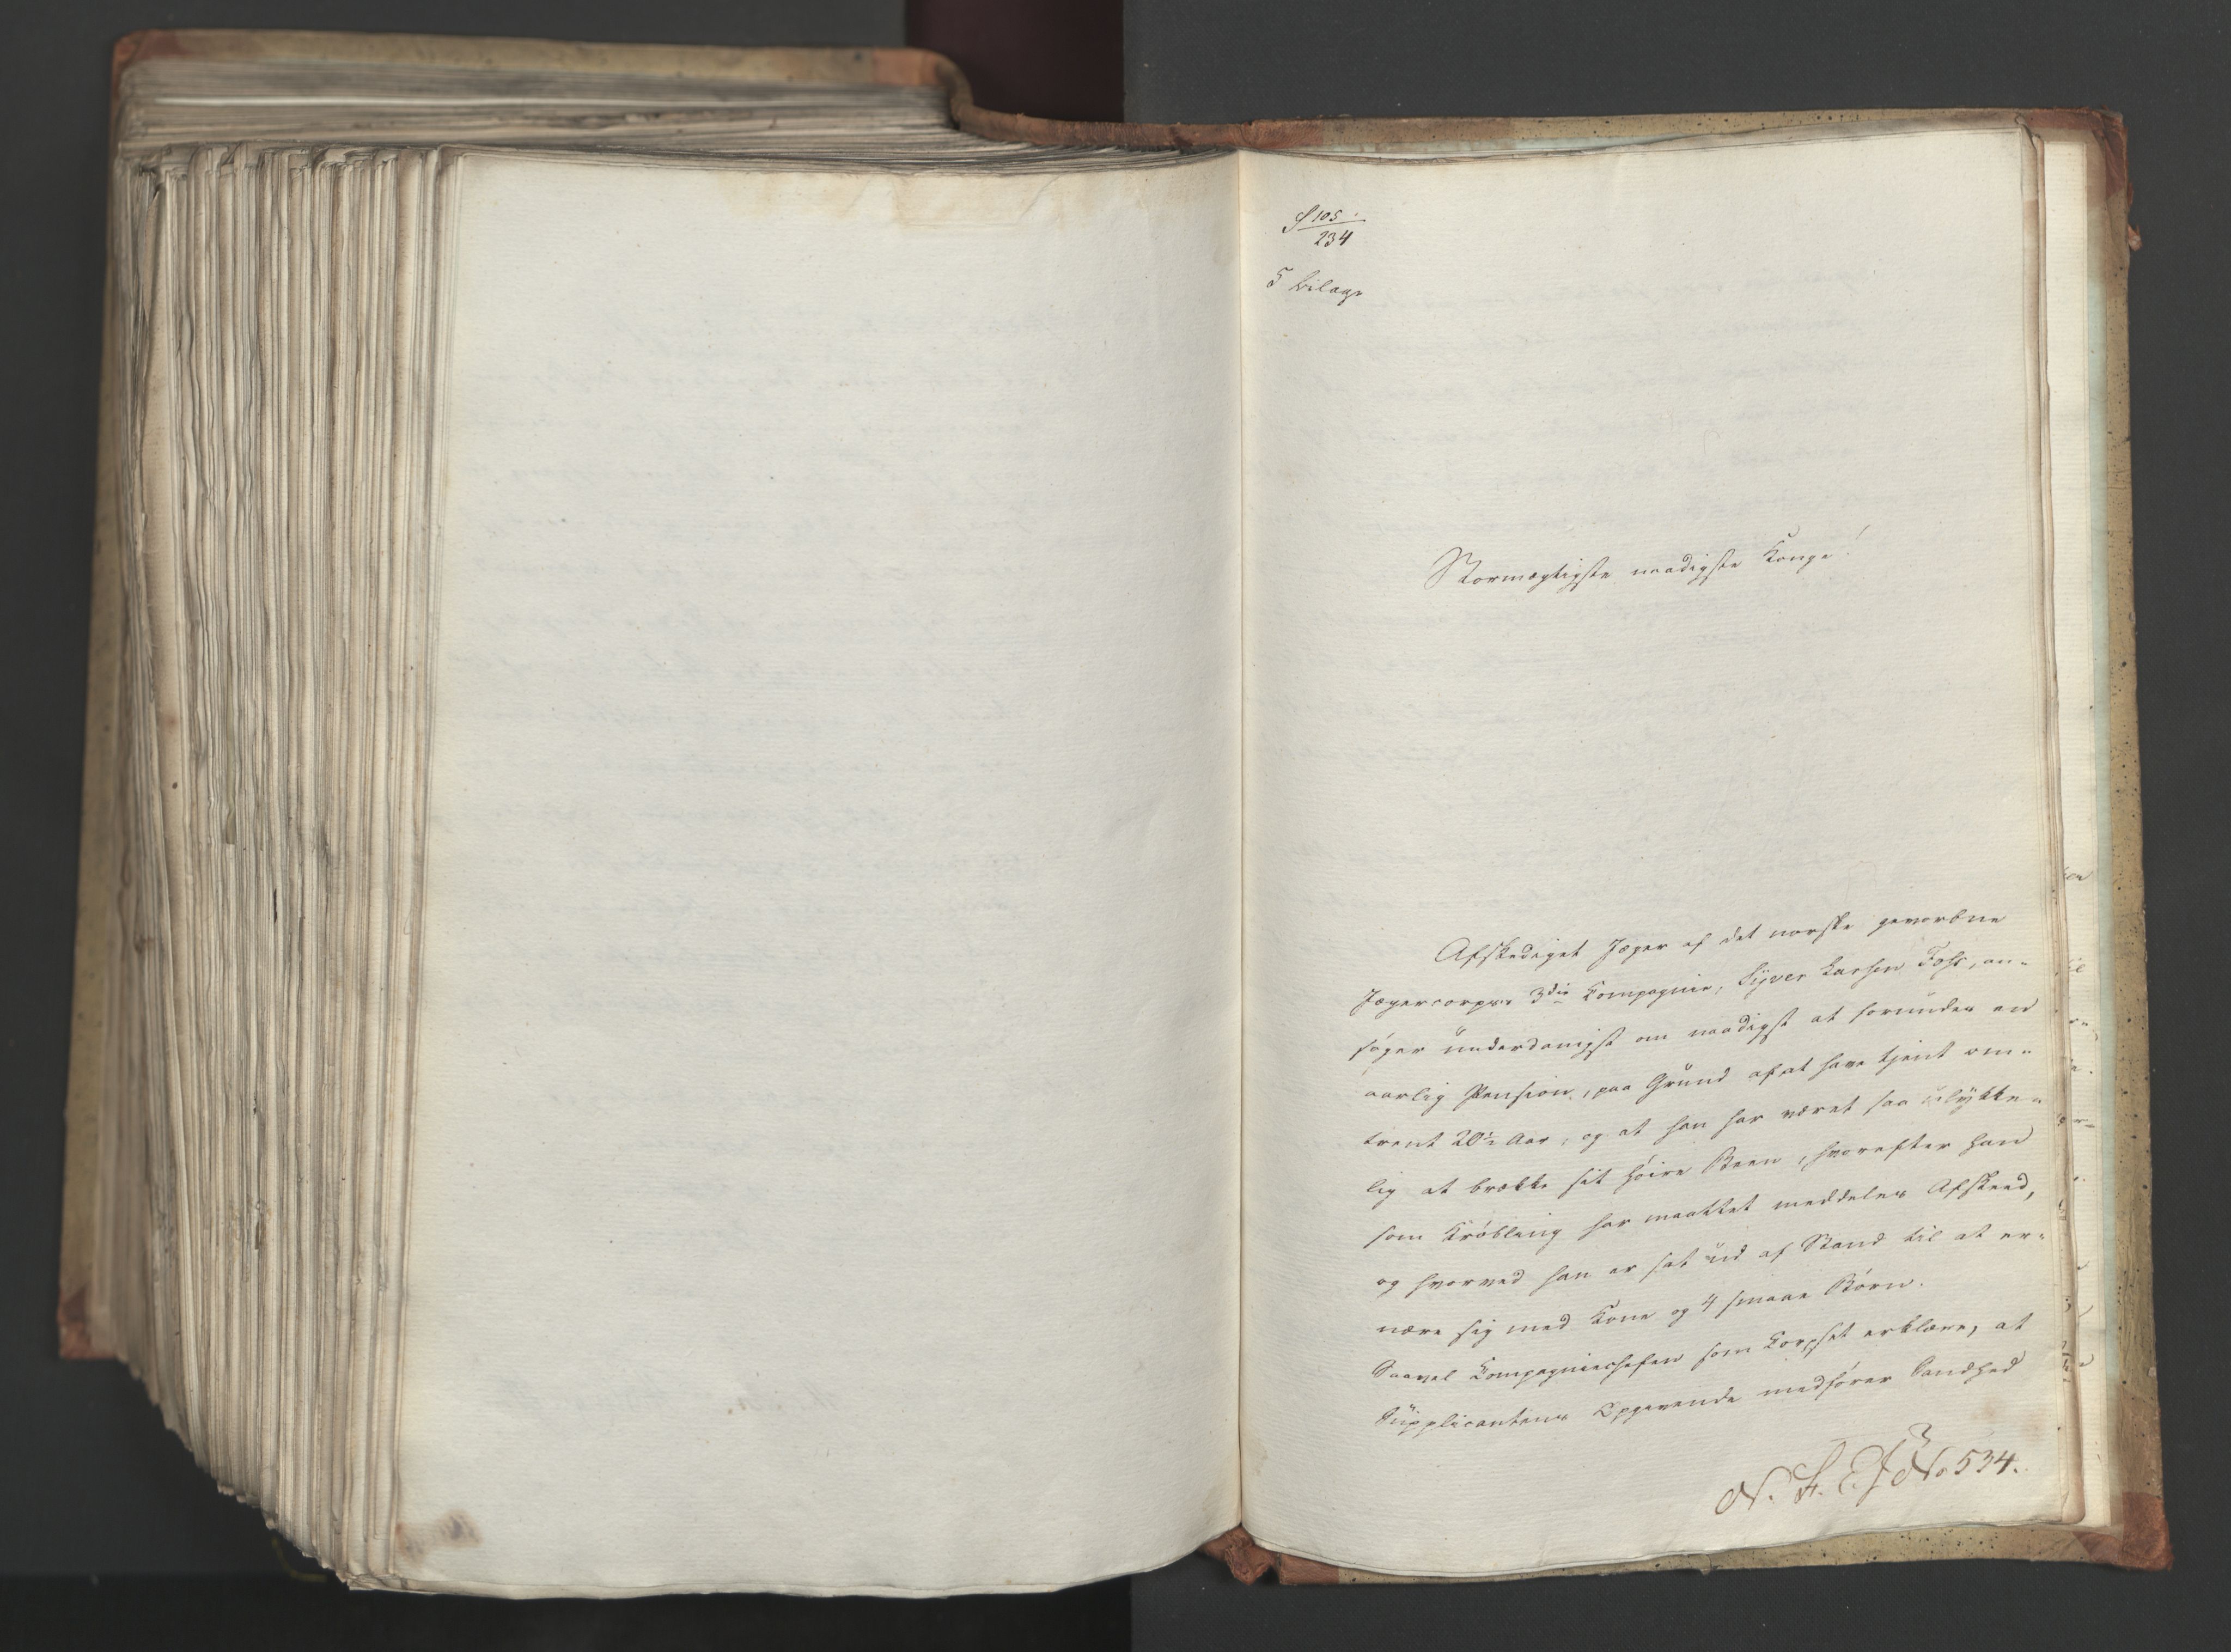 S 105
234
5 bilage
Stormægtigste naadigste Konge!
Afskediget Jæger af det norske gevorbne
Jægercorpses 3die Compagnie, Syver Larsen Foss, an-
søger underdanigst om naadigst at forundes en
aarlig Pension, paa Grund af at have tjent om-
trent 20½ Aar, og at han har været saa ulykke-
lig at brække sit høire Been, hvorefter han
som Krøbling har maattet meddeles Afskeed,
og hvorved han er sat ud af Stand til at er-
nære sig med Kone og 4 smaae Børn.
Saavel Compagniechefen som Corpset erklære, at
Supplicantens Opgivende medfører Sandhed
N. F. E. No 534.